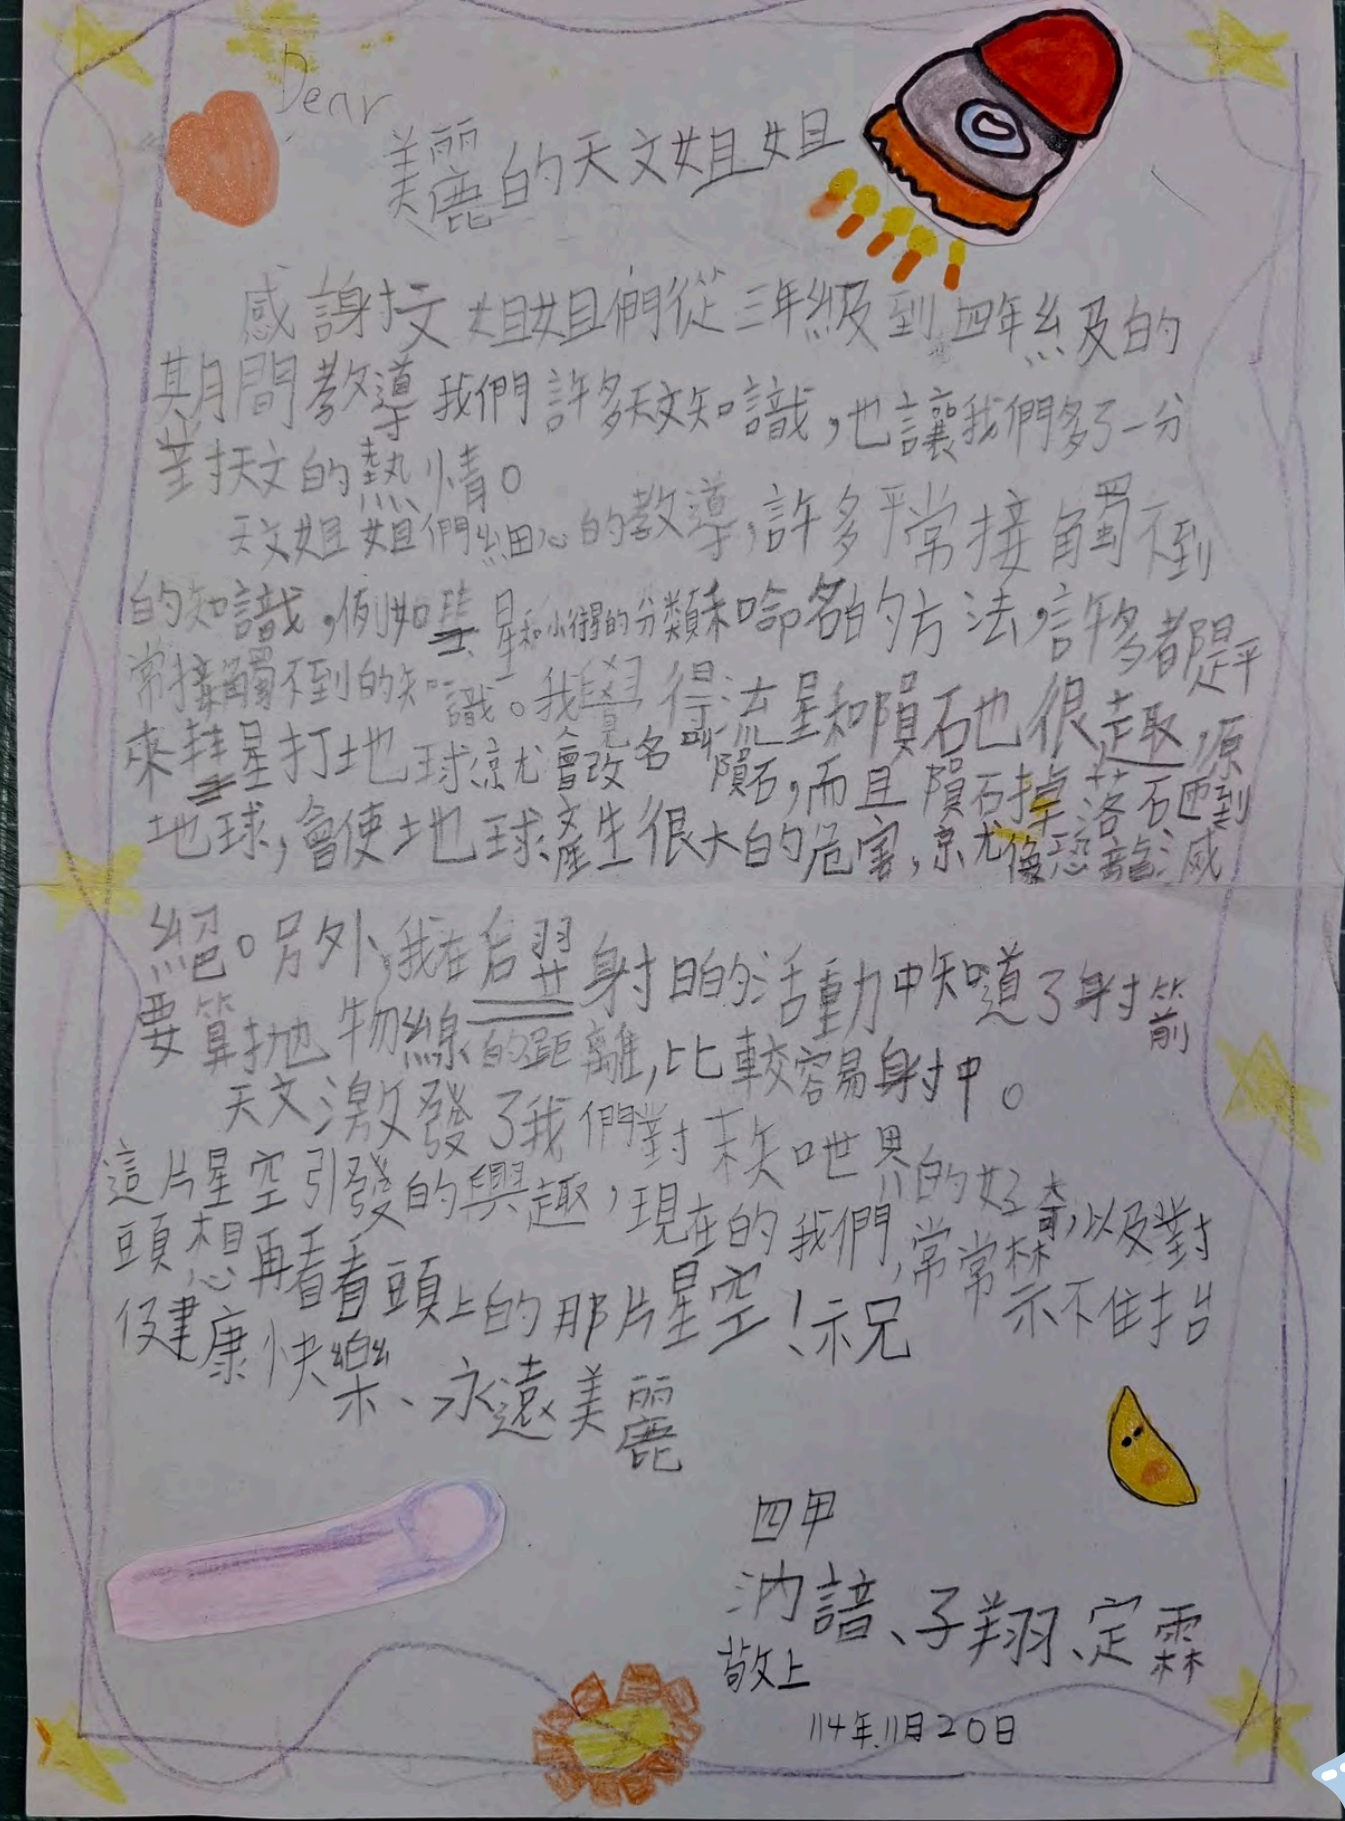 Dear
美麗的天文姐姐
感謝天文姐姐們從三年級到四年級的
期間教導我們許多天文知識，也讓我們多了一分
對天文的熱情。
天文姐姐們細心的教導，許多平常接觸不到
的知識，例如彗星和小行星的分類和命名的方法，許多都是平
常接觸不到的知識。我覺得流星和隕石也很趣，原
來彗星打地球就會改名叫隕石，而且隕石掉落石砸到
地球，會使地球產生很大的危害，就像恐龍滅
絕。另外，我在后羿射日的活動中知道了射箭
要算拋物線的距離，比較容易射中。
天文激發了我們對未知世界的好奇，以及對
這片星空引發的興趣，現在的我們，常常禁不住抬
頭想再看看頭上的那片星空！祝
健康快樂、永遠美麗
四甲
汭諳、子翔、定霖
敬上
114年.11月20日